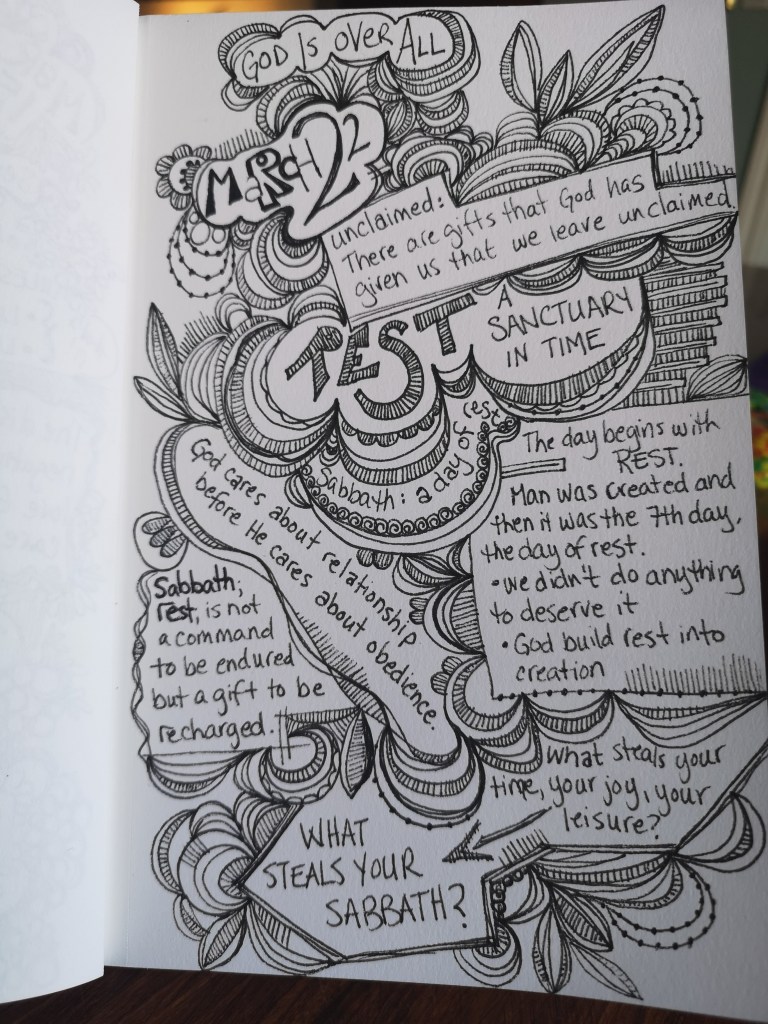 GOD IS OVER ALL
MARCH 22
unclaimed:
There are gifts that God has
given us that we leave unclaimed.
REST
A
SANCTUARY
IN TIME
Sabbath: a day of rest
The day begins with
REST.
Man was created and
then it was the 7th day,
the day of rest.
• we didn't do anything
to deserve it
• God build rest into
creation
God cares about relationship
before He cares about obedience.
Sabbath,
rest, is not
a command
to be endured
but a gift to be
recharged.
What steals your
time, your joy, your
leisure?
WHAT
STEALS YOUR
SABBATH?